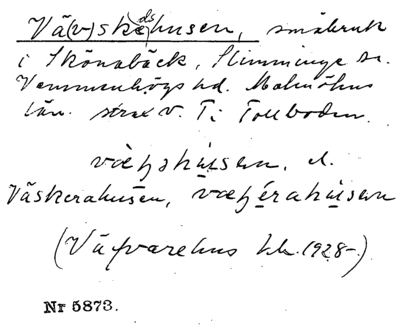 Vä(v)skedshusen, småbruk
i Skönabäck, Slimminge sn.
Vemmenhögs hd. Malmöhus
län. strax v. T: Tollboden.
husen, el.
Väskerahusen,
(Väfvarehus hk. 1928-)
Nr 5873.